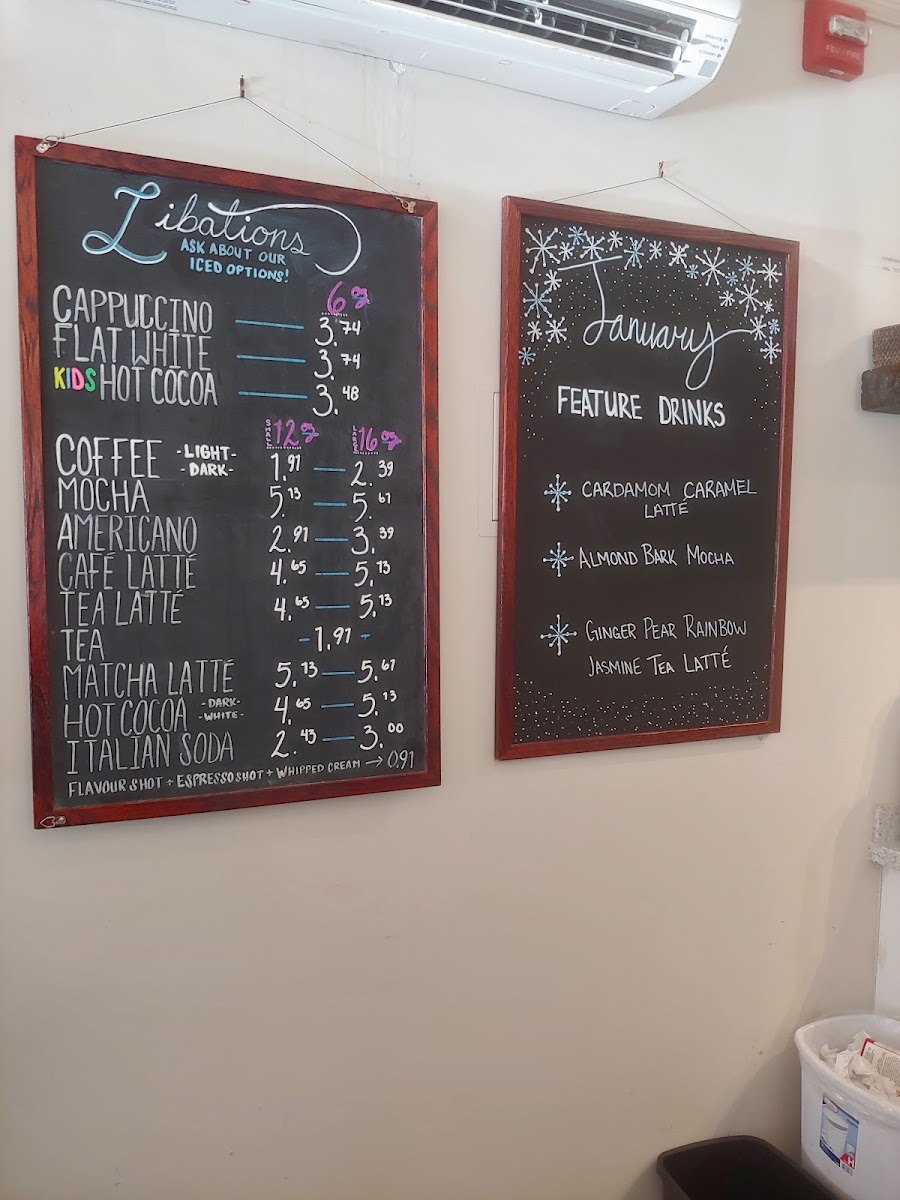 Libations
ASK ABOUT OUR
ICED OPTIONS!
6 oz
CAPPUCCINO 3.74
FLAT WHITE 3.74
KIDS HOT COCOA 3.48
SMALL 12 oz LARGE 16 oz
COFFEE -LIGHT- -DARK- 1.91 2.39
MOCHA 5.13 5.61
AMERICANO 2.91 3.39
CAFÉ LATTÉ 4.65 5.13
TEA LATTÉ 4.65 5.13
TEA -1.91-
MATCHA LATTÉ 5.13 5.61
HOT COCOA -DARK- -WHITE- 4.65 5.13
ITALIAN SODA 2.43 3.00
FLAVOUR SHOT + ESPRESSO SHOT + WHIPPED CREAM → 0.91
January
FEATURE DRINKS
CARDAMOM CARAMEL
LATTÉ
ALMOND BARK MOCHA
GINGER PEAR RAINBOW
JASMINE TEA LATTÉ
FEU / FIRE